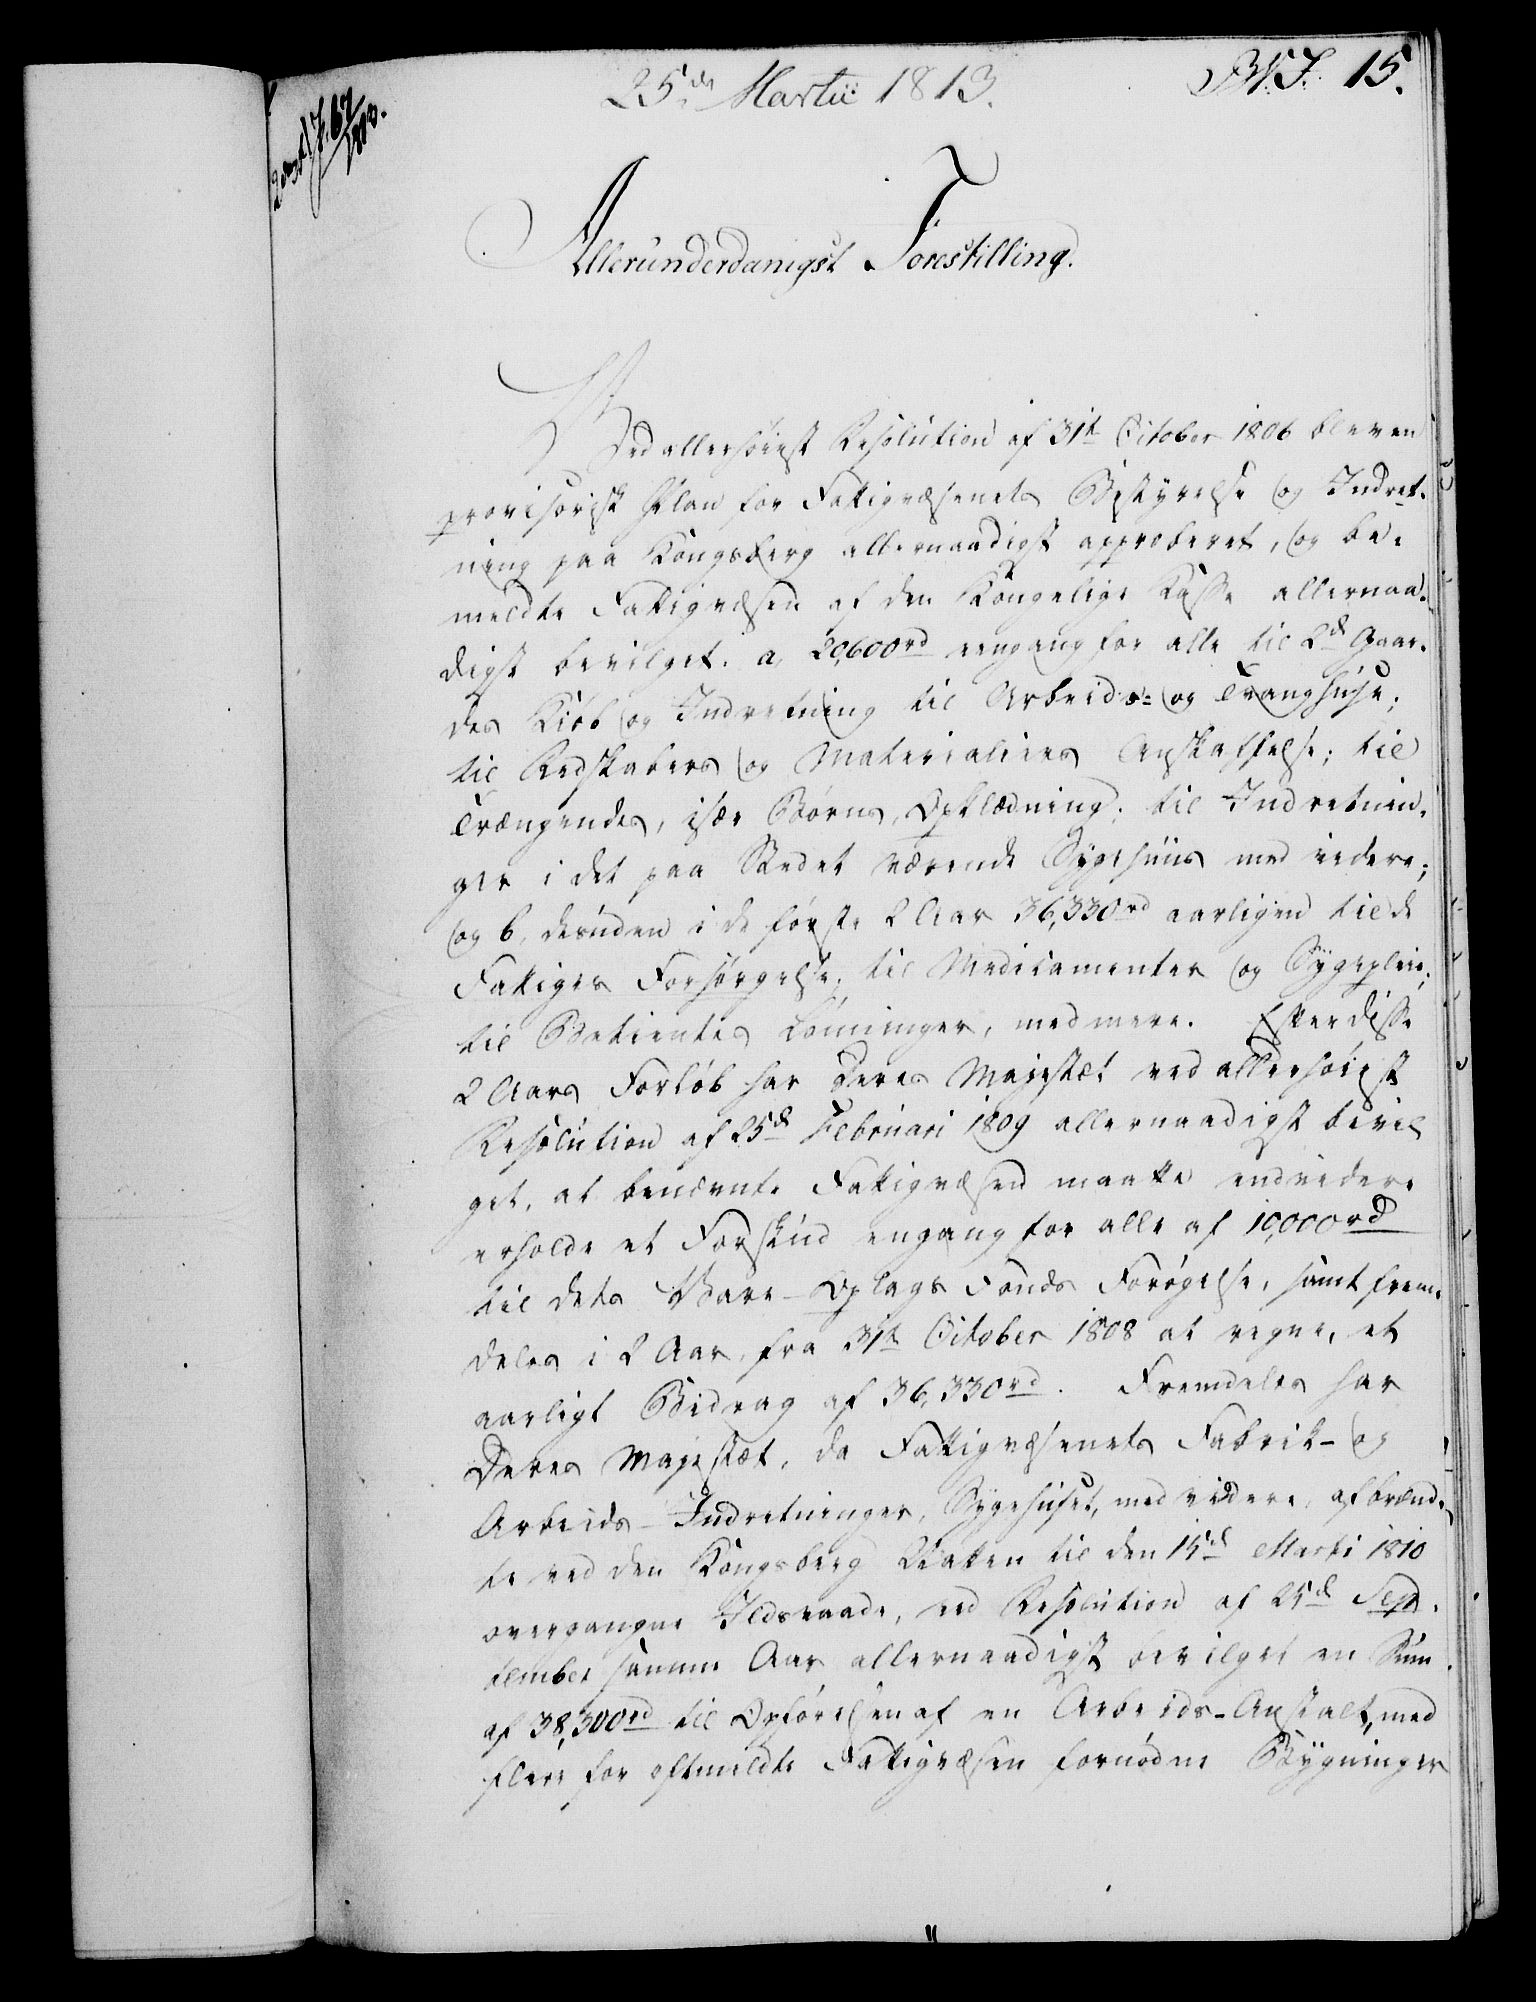 25de Martii 1813.
15.
Allerunderdanigst Forestilling.
Ved allerhöiest Resolution af 31te October 1806 blev en
provisorisk Plan for Fattigvæsenets Bestyrelse og Indret-
ning paa Kongsberg allernaadigst approberet, og be-
meldte Fattigvæsen af den Kongelige Kasse allernaa-
digst bevilget. a, 20,600rd eengang for alle til 2de Gaar-
des Kiöb og Indretning til Arbeids- og Tvanghuse;
til Redskabers og Materialiers Anskaffelse; til
Trængendes, især Börns, Opklædning; til Indretnin-
ger i det paa Stedet værende Sygehuus med videre;
og b, desuden i de förste 2 Aar 36,330rd aarligen til de
Fattiges Forsörgelse, til Medicamenter og Sygepleie;
til Betientes Lönninger, med mere. Efter disse
2 Aars Forlöb har Deres Majestæt ved allerhöiest
Resolution af 25de Februari 1809 allernaadigst bevil
get, at benævnte Fattigvæsen maatte endvidere
erholde et Forskud engang for alle af 10,000rd
til dets Vare-Oplags Fonds Forögelse, samt frem-
deles i 2 Aar, fra 31te October 1808 at regne, et
aarligt Bidrag af 36,330rd. Fremdeles har
Deres Majestæt, da Fattigvæsenets Fabrik- og
Arbeids-Indretninger, Sygehuset, med videre, afbrænd-
te ved den Kongsberg Natten til den 15de Marti 1810
overgangne Ildsvaade, ved Resolution af 25de Sep-
tember samme Aar allernaadigst bevilget en Sum
af 38,300rd til Opförelsen af en Arbeids-Anstalt, med
flere for oftmeldte Fattigvæsen fornödne Bygninger